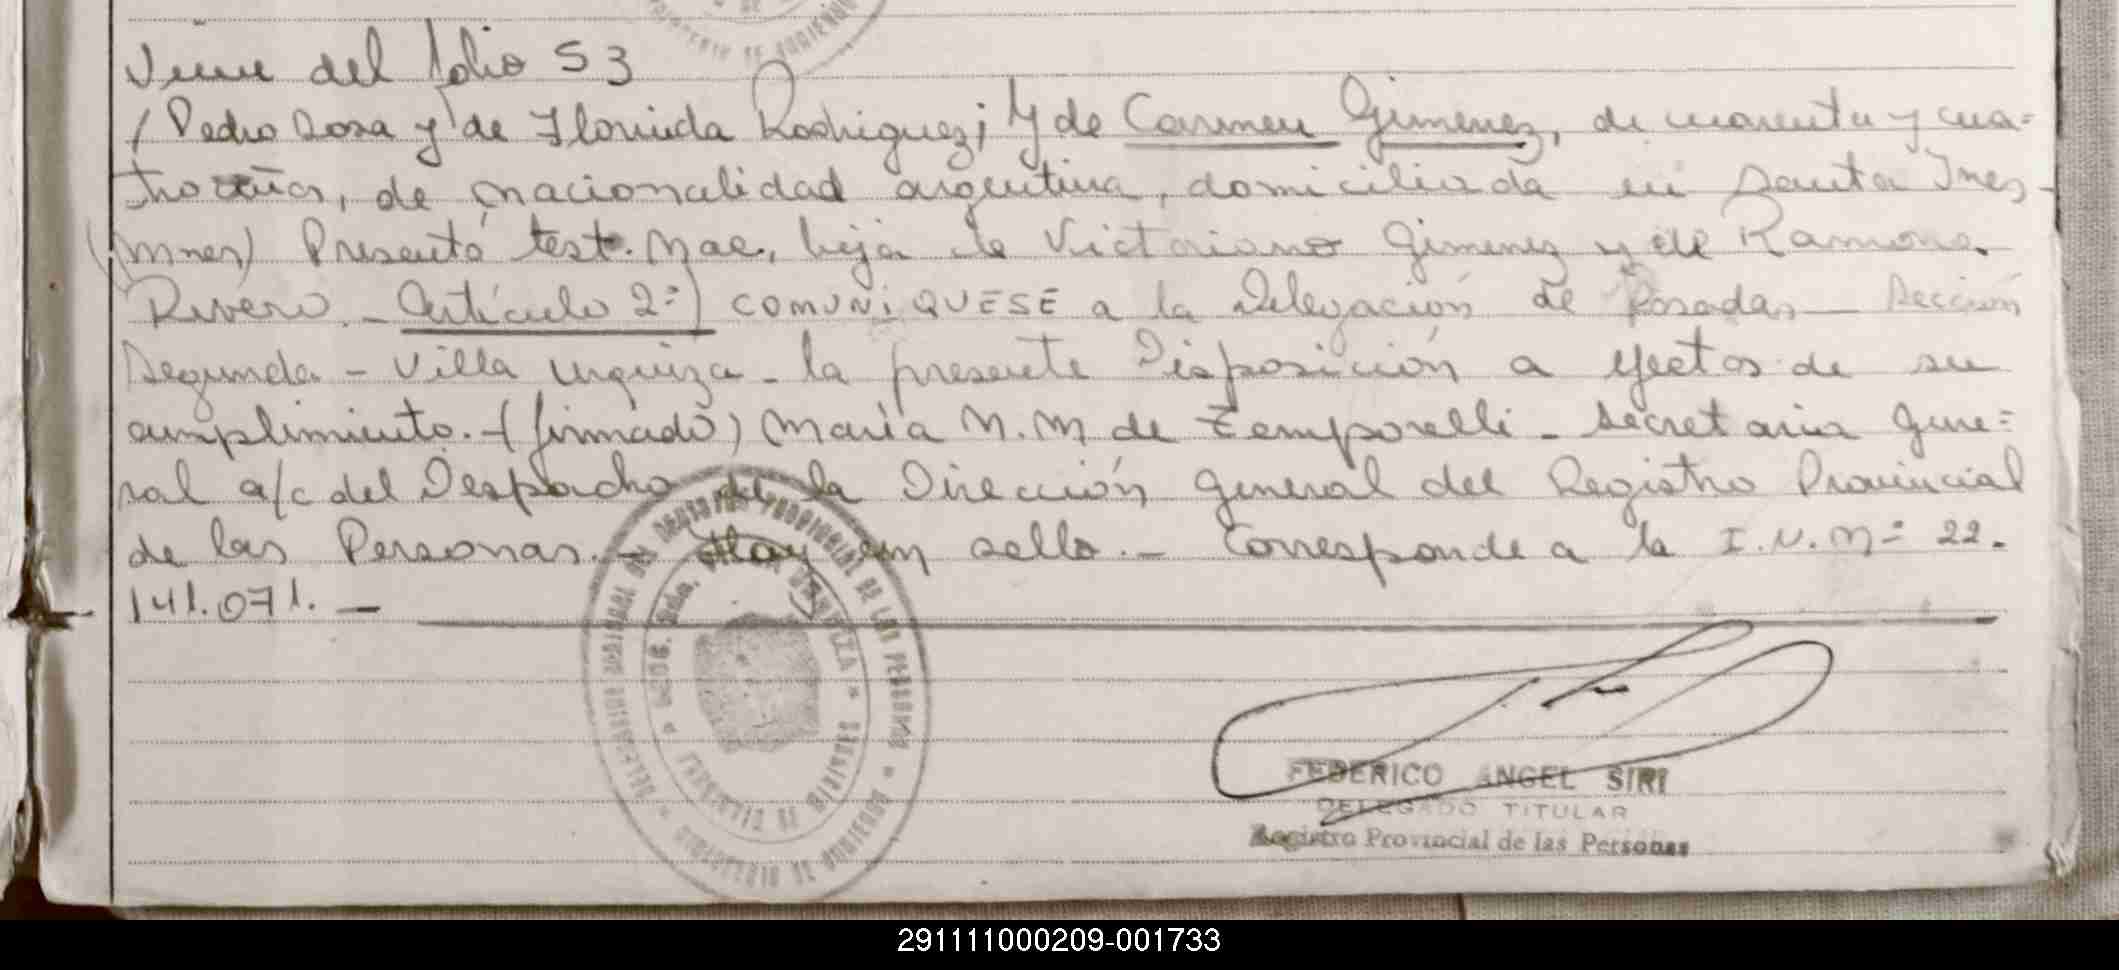 Viene del folio 53
/Pedro Sosa y de Florinda Rodriguez; y de Carmen Gimenez, de cuarenta y cua=
tro años, de nacionalidad argentina, domiciliada en Santa Ines-
(Mnes) Presentó test. Nac., hija de Victoriano Gimenez y de Ramona
Rivero.- Artículo 2º) COMUNIQUESE a la Delegación de Posadas - Sección
Segunda - Villa Urquiza - la presente Disposición a efectos de su
cumplimiento.-(firmado) María N. M de Temporelli - Secretaria Gene=
ral a/c del Despacho de la Dirección General del Registro Provincial
de las Personas.- Hay un sello.- Corresponde a la I.N.Nº 22.
141.071.-
REGISTRO PROVINCIAL DE LAS PERSONAS
URQUIZA
FEDERICO ANGEL SIRI
DELEGADO TITULAR
Registro Provincial de las Personas
291111000209-001733